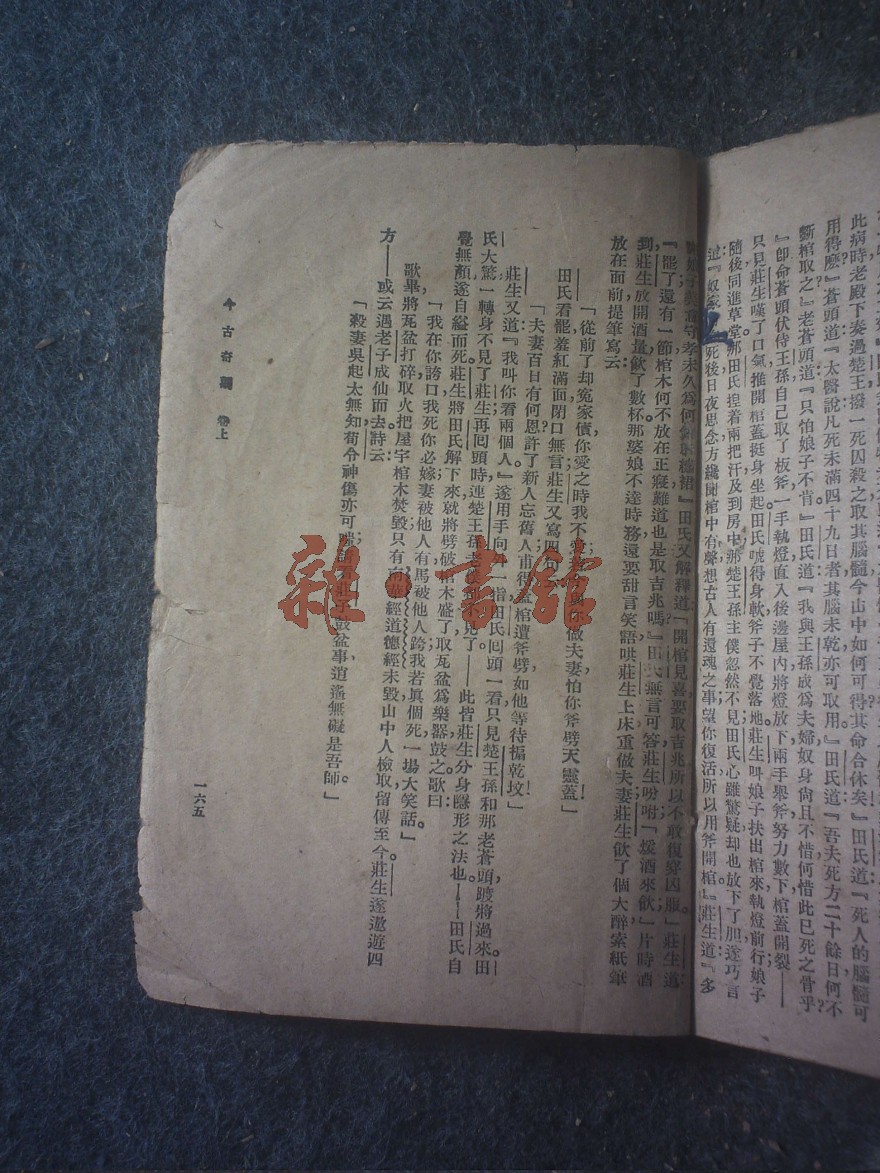 此病時老殿下奏過楚王撥一死囚殺之取其腦髓今山中如何可得其命合休矣』田氏道『死人的腦髓可
用得麽』蒼頭道『太醫說凡死未滿四十九日者其腦未乾亦可取用』田氏道『吾夫死方二十餘日何不
斵棺取之』老蒼頭道『只怕娘子不肯』田氏道『我與王孫成爲夫婦奴身尙且不惜何惜此已死之骨乎
』卽命蒼頭伏侍王孫自己取了板斧一手執燈直入後邊屋內將燈放下兩手舉斧努力數下棺蓋開裂——
只見莊生嘆了口氣推開棺蓋挺身坐起田氏唬得身軟斧子不覺落地莊生叫娘子扶出棺來執燈前行娘子
隨後同進草堂那田氏捏着兩把汗及到房中那楚王孫主僕忽然不見田氏心雖驚疑却也放下了胆遂巧言
『奴家死後日夜思念方纔聞棺中有聲想古人有還魂之事望你復活所以用斧開棺』莊生道『多
娘子守孝未久爲何裙』田氏又解釋道『開棺見喜要取吉兆所以不敢復穿囚服。』莊生道
『罷了還有一節棺木何不放在正寢難道也是取吉兆嗎』田氏無言可答莊生吩咐『援酒來飲』片時酒
到莊生放開酒量飲了數杯那婆娘不達時務還要甜言笑語哄莊生上床重做夫妻莊生飲了個大醉索紙筆
放在面前提筆寫云：
「從前了却冤家債你愛之時我不與你做夫妻怕你斧劈天靈蓋！」
田氏看罷羞紅滿面閉口無言莊生又寫四句：
「夫妻百日有何恩許了新人忘舊人甫得蓋棺遭斧劈如他等待搧乾坟！」
莊生又道『我叫你看兩個人。』遂用手向一指田氏囘頭一看只見楚王孫和那老蒼頭踱將過來田
氏大驚一轉身不見了莊生再囘頭時連楚王孫老不見了——此皆莊生分身隱形之法也。——田氏自
覺無顏遂自縊而死莊生將田氏解下來就將劈破棺木盛了取瓦盆爲樂器鼓之歌曰：
「我在你誇口我死你必嫁妻被他人有馬被他人跨我若眞個死一場大笑話。」
歌畢將瓦盆打碎取火把屋宇棺木焚毀只有南華經道德經未毀山中人檢取留傳至今。莊生遂遨遊四
方——或云遇老子成仙而去詩云：
「殺妻吳起太無知荀令神傷亦可請看莊子鼓盆事逍遙無礙是吾師。」
今古奇觀 卷上
一六五
雜·書館